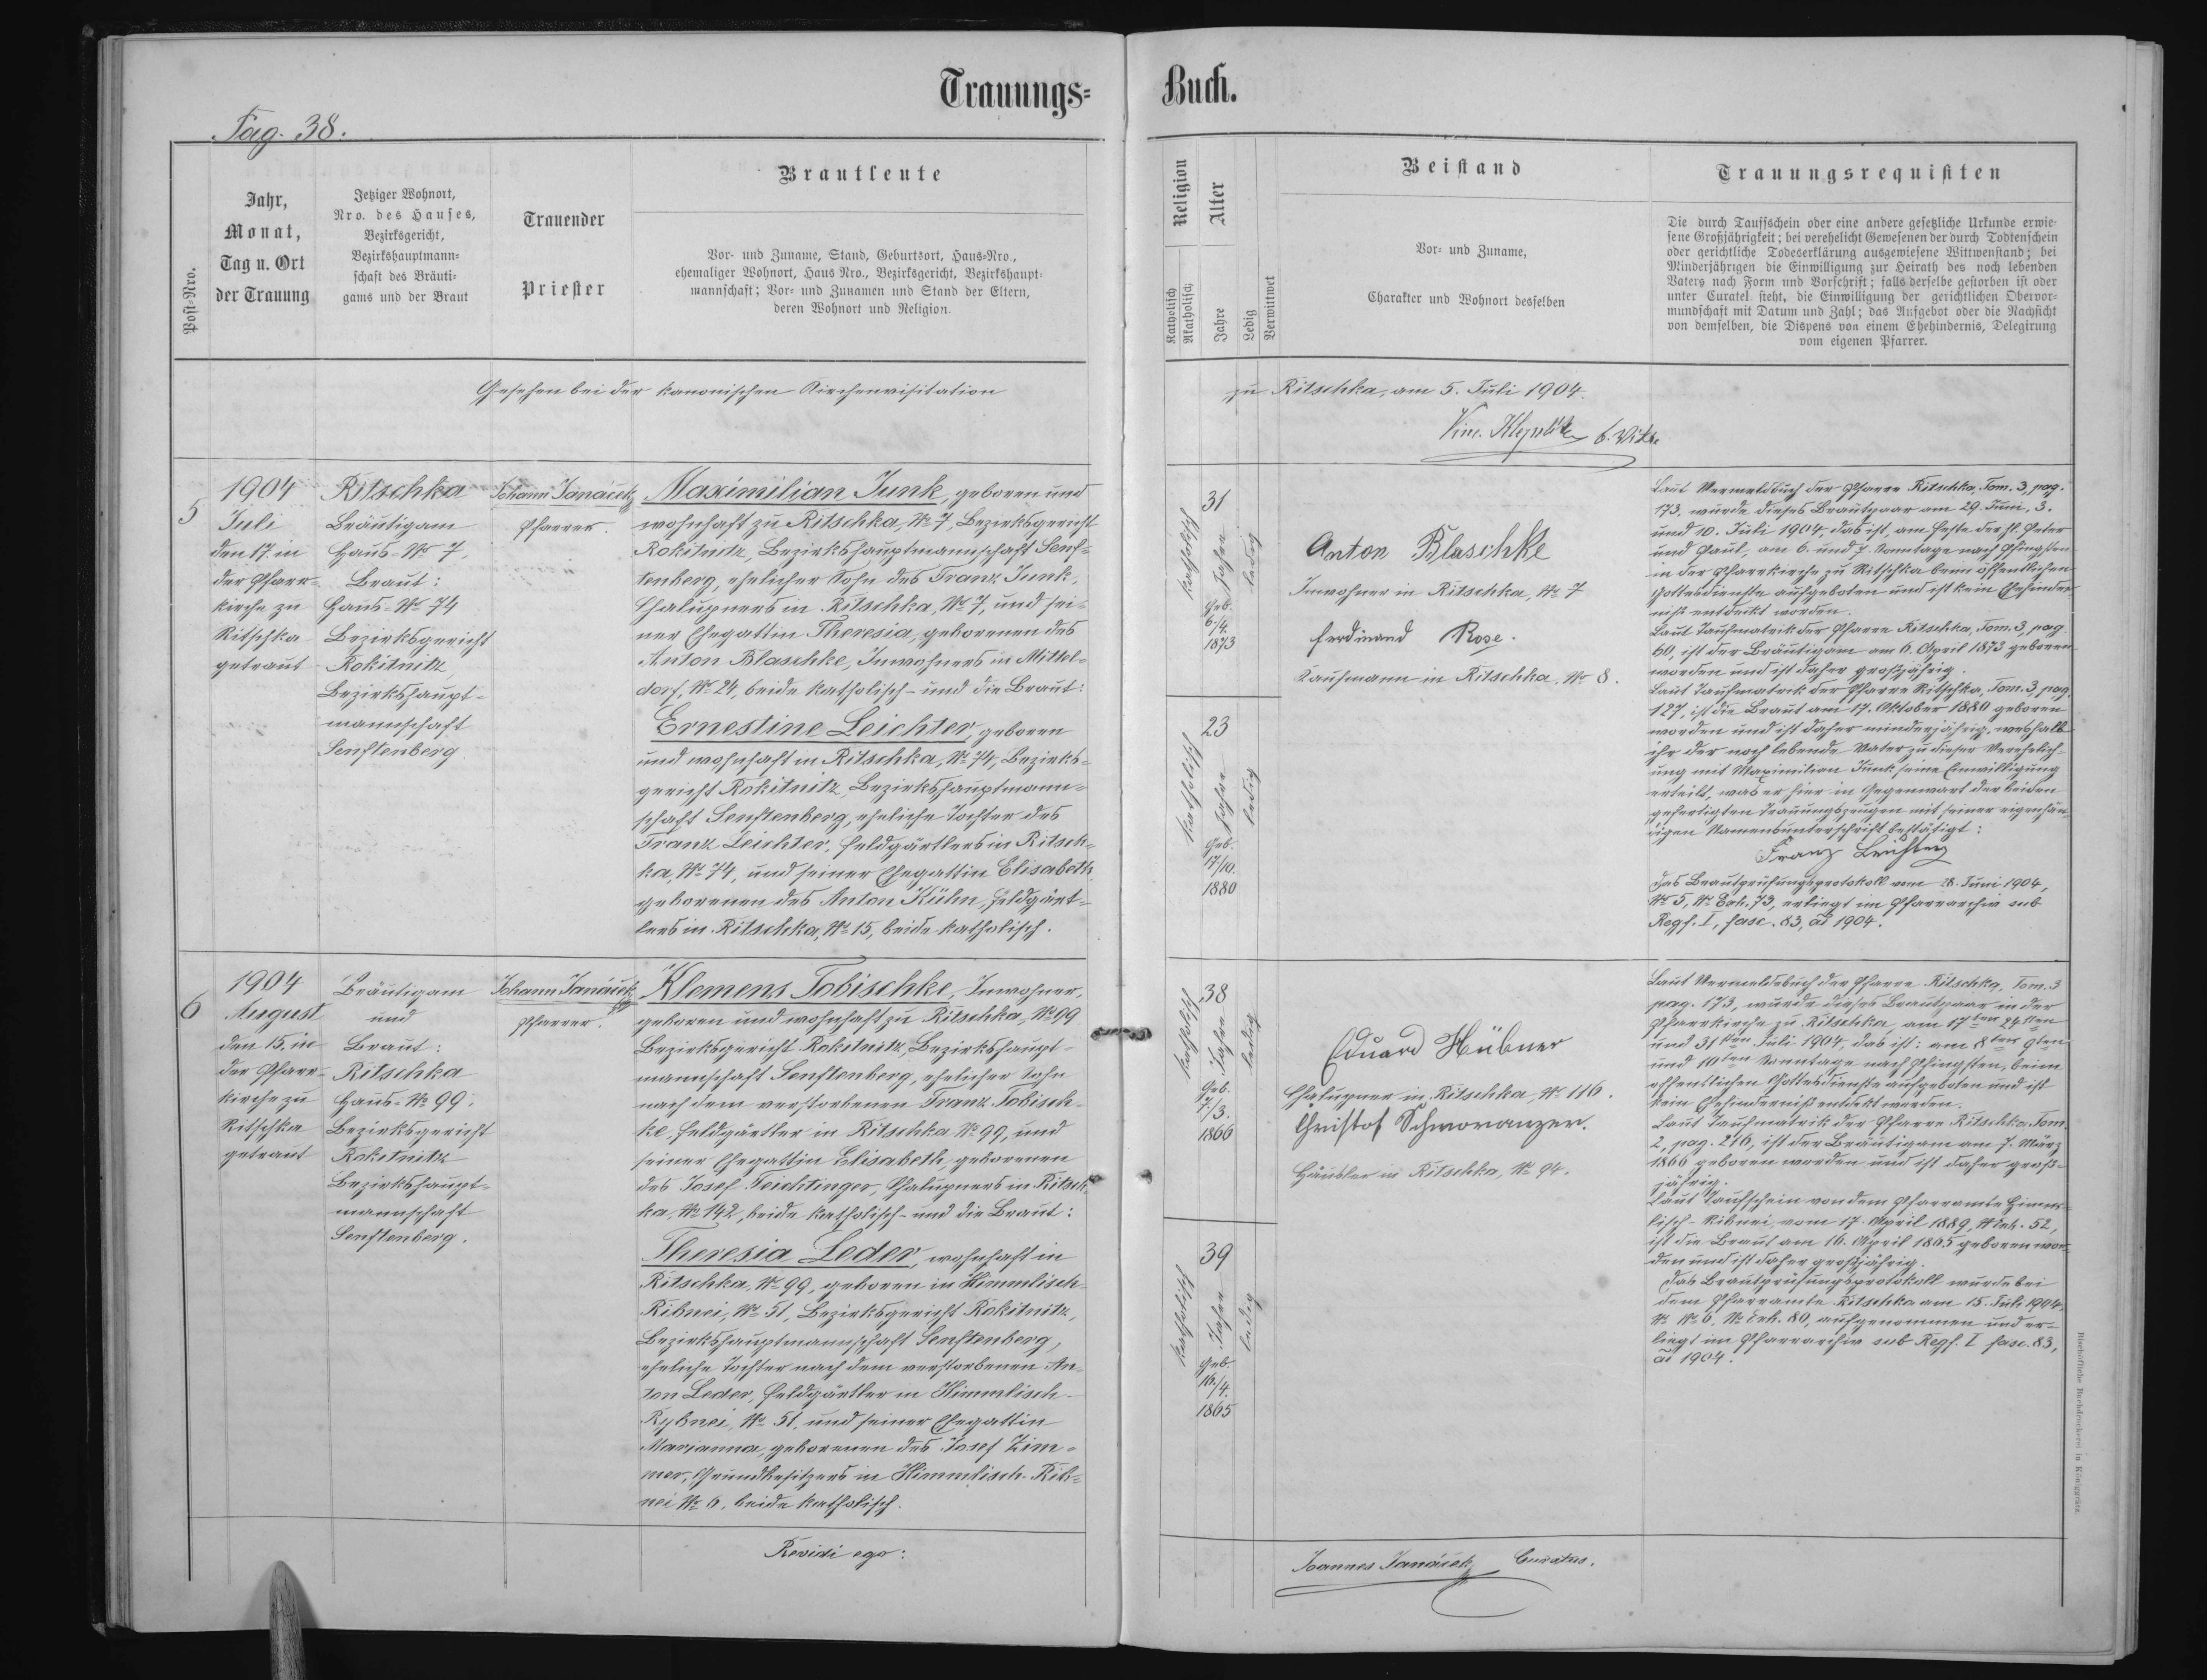 Trauungs=
Buch.
Pag. 38.
Post=Nro.
Jahr,
Monat,
Tag u. Ort
der Trauung
Jetziger Wohnort,
Nro. des Hauses,
Bezirksgericht,
Bezirkshauptmann=
schaft des Bräuti=
gams und der Braut
Trauender
Priester
Brautleute
Vor= und Zuname, Stand, Geburtsort, Haus=Nro.,
ehemaliger Wohnort, Haus Nro., Bezirksgericht, Bezirkshaupt=
mannschaft; Vor= und Zunamen und Stand der Eltern,
deren Wohnort und Religion.
Religion
Katholisch
Akatholisch
Alter
Jahre
Ledig
Verwitwet
Beistand
Vor= und Zuname,
Charakter und Wohnort desselben
Trauungsrequisiten
Die durch Taufschein oder eine andere gesetzliche Urkunde erwie=
sene Großjährigkeit; bei verehelicht Gewesenen der durch Todtenschein
oder gerichtliche Todeserklärung ausgewiesene Wittwenstand; bei
Minderjährigen die Einwilligung zur Heirath des noch lebenden
Vaters nach Form und Vorschrift; falls derselbe gestorben ist oder
unter Curatel steht, die Einwilligung der gerichtlichen Obervor=
mundschaft mit Datum und Zahl; das Aufgebot oder die Nachsicht
von demselben, die Dispens von einem Ehehindernis, Delegirung
vom eigenen Pfarrer.
Gesehen bei der kanonischen Kirchenvisitation
zu Ritschka, am 5. Juli 1904.
5
1904
Juli
den 17. in
der Pfarr=
kirche zu
Ritschka
getraut
Ritschka
Bräutigam
Haus-№ 7.
Braut:
Haus-№ 74
Bezirksgericht
Rokitnitz
Bezirkshaupt=
mannschaft
Senftenberg
Johann Janáček
Pfarrer.
Maximilian Junk, geboren und
wohnhaft zu Ritschka, № 7, Bezirksgericht
Rokitnitz, Bezirkshauptmannschaft Senf=
tenberg, ehelicher Sohn des Franz Junk,
Chalupners in Ritschka, № 7, und sei=
ner Ehegattin Theresia, geborenen des
Anton Blaschke, Inwohners in Mittel=
dorf, № 24, beide katholisch - und die Braut:
Ernestine Leichter, geboren
und wohnhaft in Ritschka, № 74, Bezirks=
gericht Rokitnitz, Bezirkshauptmann=
schaft Senftenberg, eheliche Tochter des
Franz Leichter, Feldgärtlers in Ritsch=
ka, № 74, und seiner Ehegattin Elisabeth
geborenen des Anton Kühn, Feldgärt=
lers in Ritschka, № 15, beide katholisch.
katholisch
31
Jahre
Geb.
6./4.
1873
ledig
katholisch
23
Jahre
Geb.
17/10.
1880
ledig
Anton Blaschke
Inwohner in Ritschka, № 7
Ferdinand Rose.
Kaufmann in Ritschka, № 8.
Laut Vermeldbuch der Pfarre Ritschka, Tom. 3, pag.
173, wurde dieses Brautpaar am 29. Juni, 3.
und 10. Juli 1904, das ist, am Feste der hl. Peter
und Paul, am 6. und 7. Sonntage nach Pfingsten
in der Pfarrkirche zu Ritschka beim öffentlichen
Gottesdienste aufgeboten und ist kein Ehehinder=
niß entdeckt worden.
Laut Taufmatrik der Pfarre Ritschka, Tom. 3, pag.
60, ist der Bräutigam am 6. April 1873 geboren
worden und ist daher großjährig.
Laut Taufmatrik der Pfarre Ritschka, Tom. 3, pag.
127, ist die Braut am 17. Oktober 1880 geboren
worden und ist daher minderjährig, weshalb
ihr der noch lebende Vater zu dieser Verehelich=
ung mit Maximilian Junk seine Einwilligung
erteilt, was er hier in Gegenwart der beiden
gefertigten Trauungszeugen mit seiner eigenhän=
digen Namensunterschrift bestätigt:
Franz Leichter
Das Brautprüfungsprotokoll vom 28. Juni 1904,
№ 5, № Exh. 73, erliegt im Pfarrarchiv sub
Regf. I, fasc. 83, ad 1904.
6
1904
August
den 15. in
der Pfarr=
kirche zu
Ritschka
getraut
Bräutigam
und
Braut:
Ritschka
Haus-№ 99.
Bezirksgericht
Rokitnitz
Bezirkshaupt=
mannschaft
Senftenberg.
Johann Janáček
Pfarrer.
Klemens Tobischke, Inwohner,
geboren und wohnhaft zu Ritschka, № 99
Bezirksgericht Rokitnitz, Bezirkshaupt=
mannschaft Senftenberg, ehelicher Sohn
nach dem verstorbenen Franz Tobisch=
ke, Feldgärtler in Ritschka № 99, und
seiner Ehegattin Elisabeth, geborenen
des Josef Teichtinger, Chalupners in Ritsch=
ka, № 142, beide katholisch - und die Braut:
Theresia Leder, wohnhaft in
Ritschka, № 99, geboren in Himmlisch-
Ribnei, № 51, Bezirksgericht Rokitnitz,
Bezirkshauptmannschaft Senftenberg,
eheliche Tochter nach dem verstorbenen An=
ton Leder, Feldgärtler in Himmlisch-
Rybnei, № 51, und seiner Ehegattin
Marianna, geborenen des Josef Zim=
mer, Grundbesitzers in Himmlisch-Rib=
nei № 6, beide katholisch.
katholisch
38
Jahre
Geb.
7./3.
1866
ledig
katholisch
39
Jahre
Geb.
16./4.
1865
ledig
Eduard Hübner
Chalupner in Ritschka, № 116.
Christof Schworanzer.
Häusler in Ritschka, № 94.
Laut Vermeldebuch der Pfarre Ritschka, Tom. 3
pag. 173, wurde dieses Brautpaar in der
Pfarrkirche zu Ritschka, am 17ten 24sten
und 31sten Juli 1904, das ist: am 8ten 9ten
und 10ten Sonntage nach Pfingsten, beim
öffentlichen Gottesdienste aufgeboten und ist
kein Ehehinderniß entdeckt worden.
Laut Taufmatrik der Pfarre Ritschka Tom.
2, pag. 216, ist der Bräutigam am 7. März
1866 geboren worden und ist daher groß=
jährig.
Laut Taufschein von dem Pfarramte Himm=
lisch-Ribnei, vom 17. April 1889, № Exh. 52,
ist die Braut am 16. April 1865 geboren wor=
den und ist daher großjährig.
Das Brautprüfungsprotokoll wurde bei
dem Pfarramte Ritschka am 15. Juli 1904,
№ 6, № Exh. 80, aufgenommen und er=
liegt im Pfarrarchiv sub Regf. I fasc. 83,
ad 1904.
Revidi ego:
Joannes Janáček Curatus.
Bischöfliche Buchdruckerei in Königgrätz.